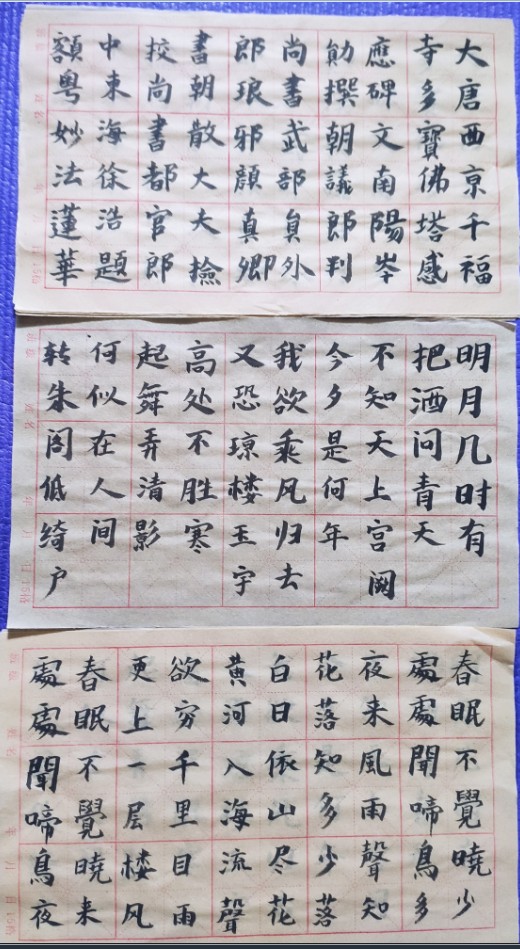 大唐西京千福
寺多寶佛塔感
應碑文南陽岑
勛撰朝議郎判
尚書武部員外
郎琅邪顔真卿
書朝散大夫撿
挍尚書都官郎
中東海徐浩題
額粤妙法蓮華
明月几时有
把酒问青天
不知天上宫阙
今夕是何年
我欲乘风归去
又恐琼楼玉宇
高处不胜寒
起舞弄清影
何似在人间
转朱阁低绮户
春眠不覺曉少
處處聞啼鳥多
夜来風雨聲知
花落知多少落
白日依山尽花
黄河入海流聲
欲穷千里目雨
更上一层楼风
春眠不覺曉来
處處聞啼鳥夜